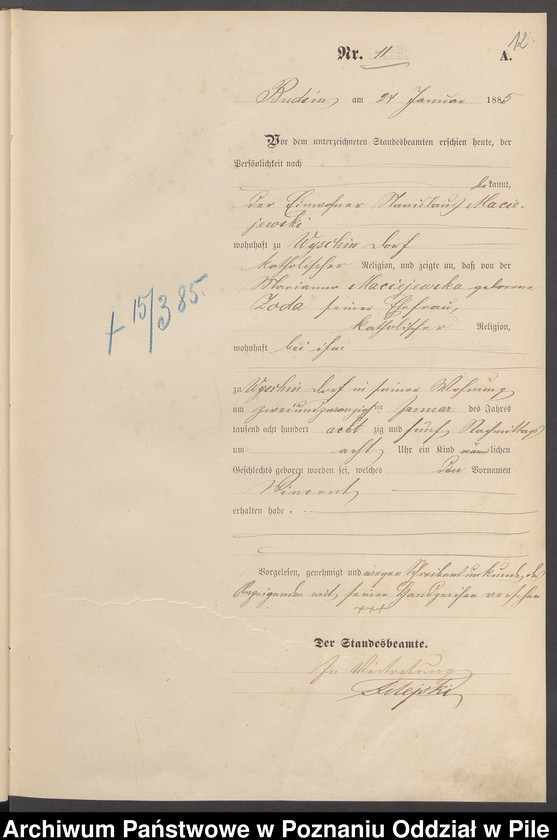 12.
Nr. 11
A.
Budsin, am 24 Januar 1885
Vor dem unterzeichneten Standesbeamten erschien heute, der
Persönlichkeit nach
bekannt,
der Einwohner Stanislaus Macie-
jewski
wohnhaft zu Wyschin Dorf
katholischer Religion, und zeigte an, daß von der
Marianna Maciejewska geborene
Zoda seiner Ehefrau,
katholischer Religion,
wohnhaft bei ihm
zu Wyschin Dorf in seiner Wohnung
am zweiundzwanzigsten Januar des Jahres
tausend acht hundert acht zig und fünf, Nachmittags
um acht Uhr ein Kind männlichen
Geschlechts geboren worden sei, welches den Vornamen
Vincent
erhalten habe.
Vorgelesen, genehmigt und wegen Schreibensunkunde, des
Anzeigenden mit seinen Handzeichen versehen
+++
Der Standesbeamte.
In Vertretung
+ 15/3 85.
Archiwum Państwowe w Poznaniu Oddział w Pile